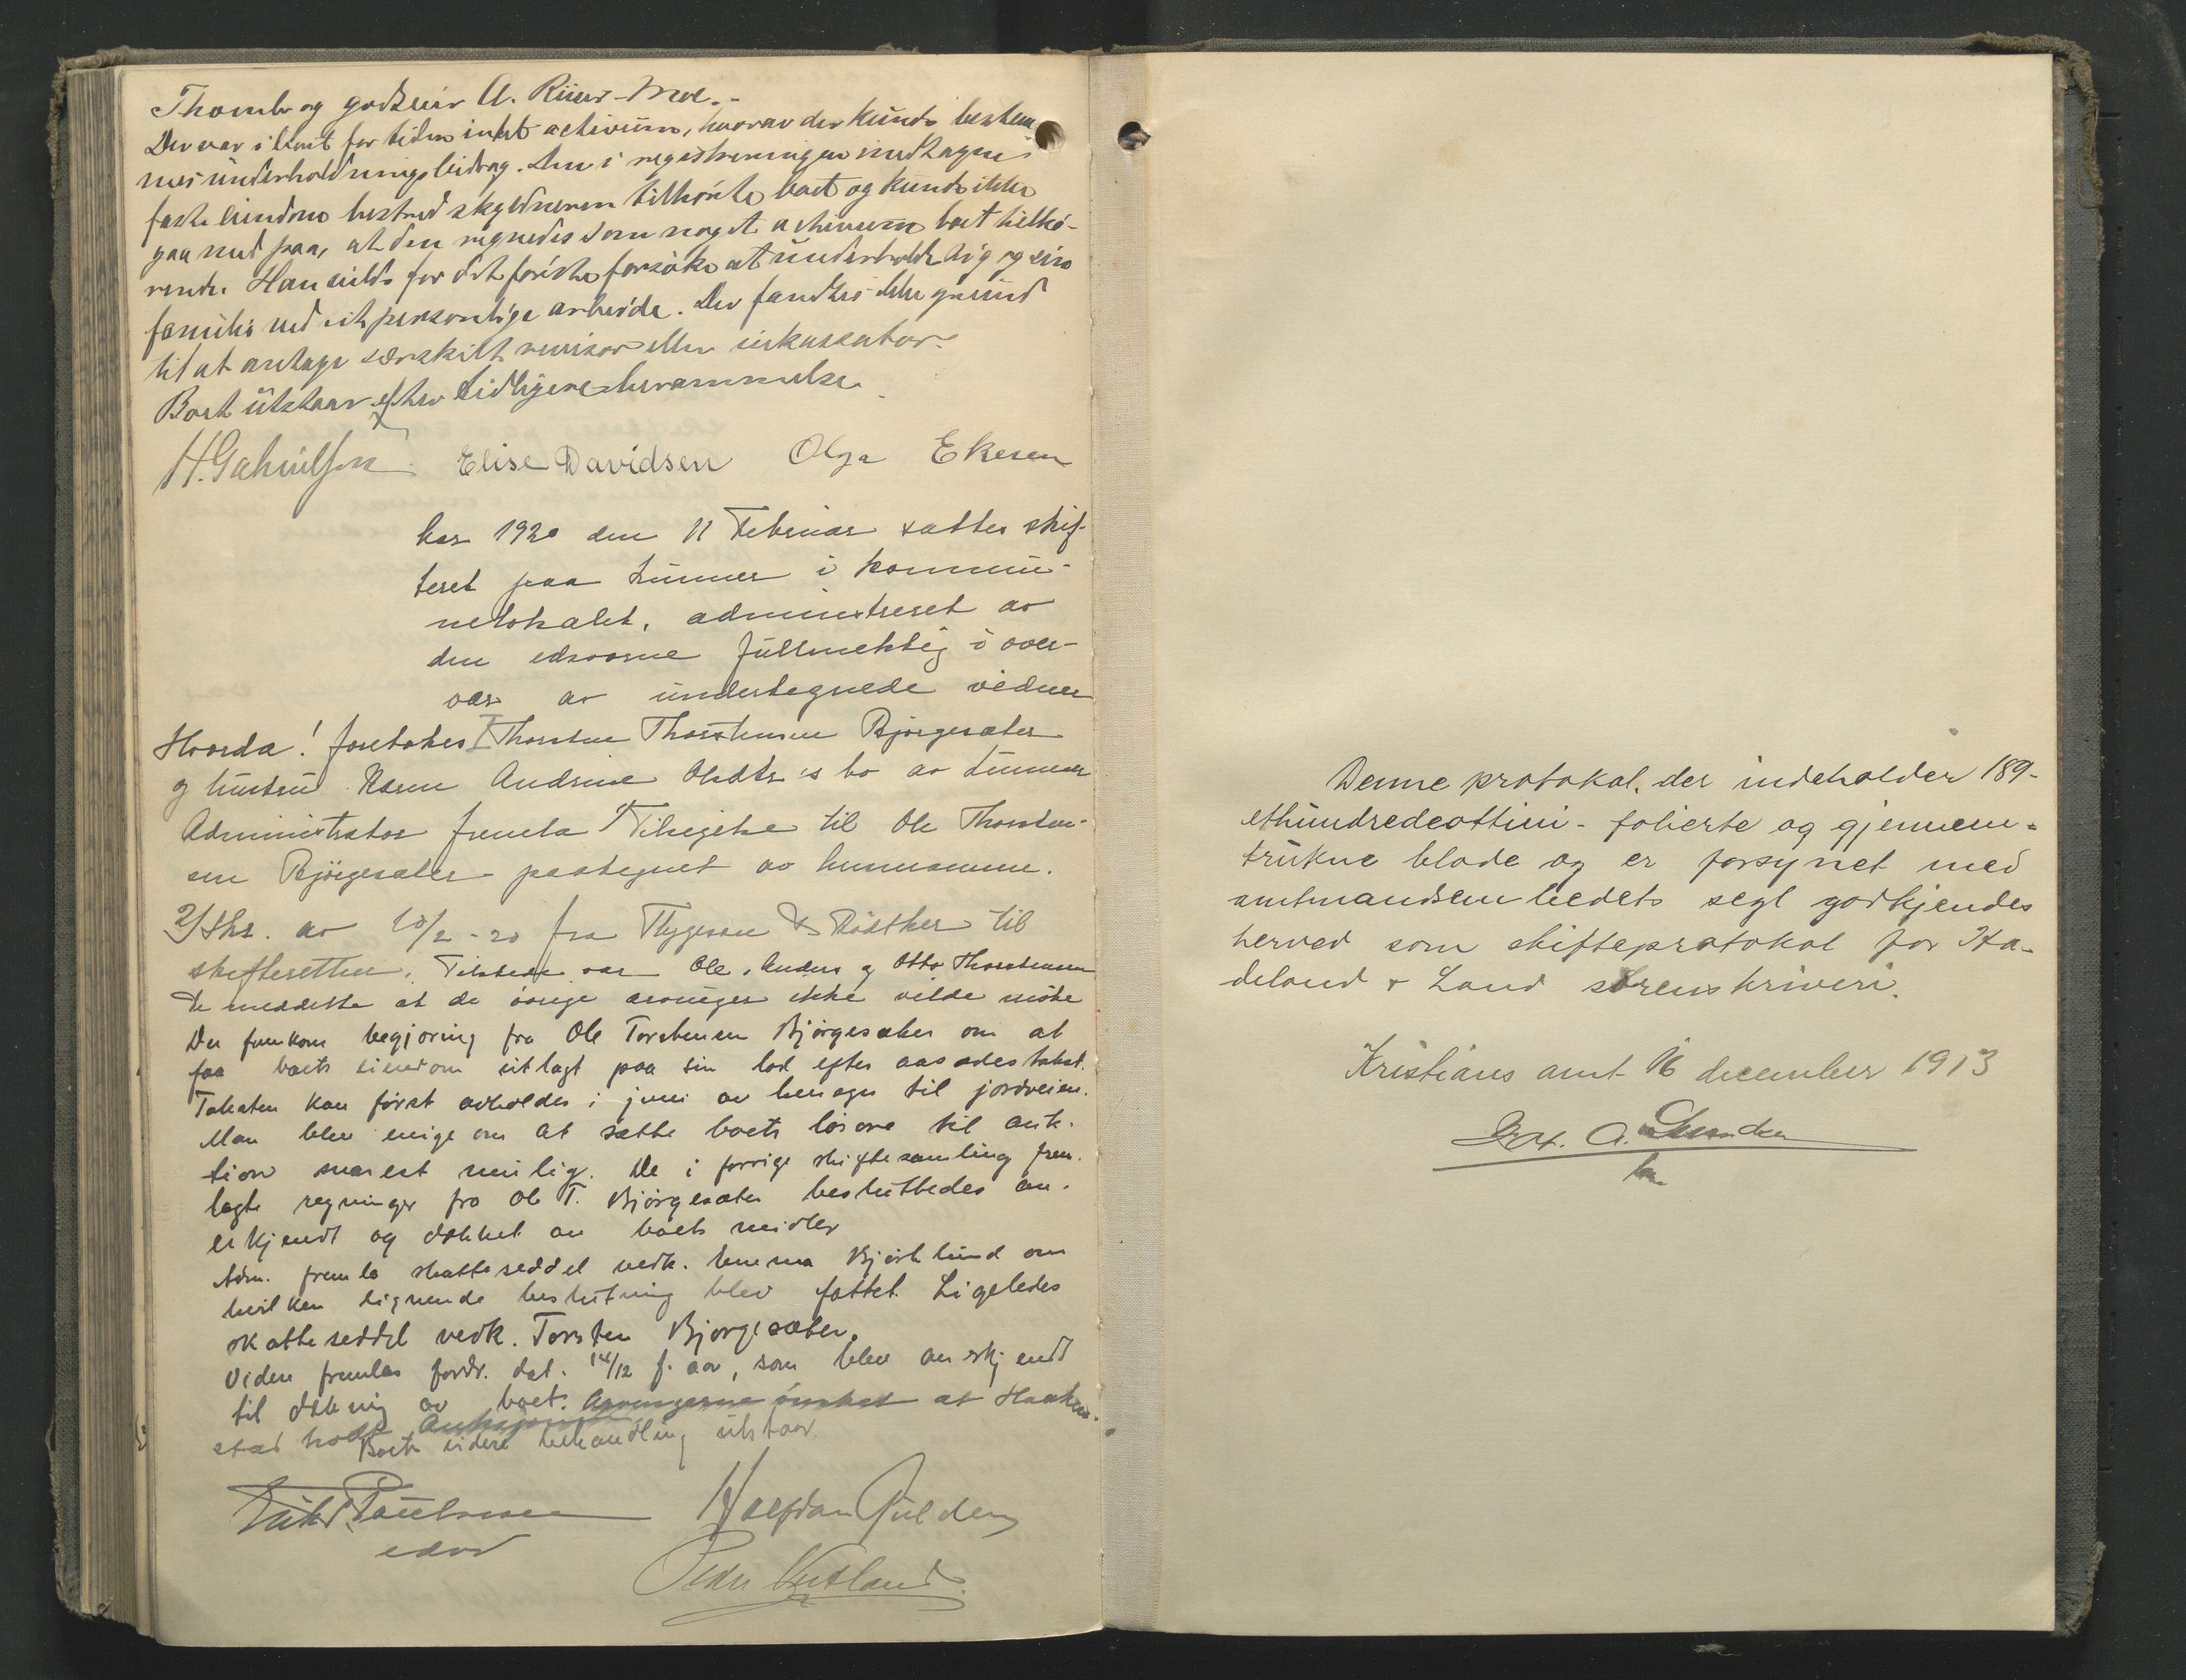 Thomle og godseier A. Riius-Moe.-
Der var i boet for tiden intet activum, hvorav der kunde bestem
mes underholdningsbidrag. Den i registreringen medtagne
faste eiendom bestred skyldneren tilhørte boet og kunde ikke
gaa med paa, at den regnedes som noget activum boet tilhø-
rende. Han vilde for det første forsøke at underholde sig og sin
familie ved sit personlige arbeide. Der fandtes ikke grund
til at antage særskilt revisor eller inkassator.
Boet utstaar efter tidligere berammelse.
H. Gabrielsen Elise Davidsen Olga Ekeren
Aar 1920 den 11 Februar sattes skif-
teret paa Lunner i kommu-
nelokalet, administreret av
den edsvorne fuldmektig i over-
vær av undertegnede vidner
Hvorda! foretokes I Thorsten Thorstensen Bjørgesæter
og hustru Karen Andrine Olsdtr's bo av Lunner
Administrator fremla 1/ Tilsigelse til Ole Thorsten-
sen Bjørgesæter paategnet av lensmanden.
2/ Skr. av 10/2-20 fra Thygeson & Røsther til
skifteretten. Tilstede var Ole, Anders og Otto Thorstensen
De meddelte at de øvrige arvinger ikke vilde møte
Der fremkom begjæring fra Ole Torstensen Bjørgesæter om at
faa boets eiendom utlagt paa sin lod efter aasædestakst.
Taksten kan først avholdes i juni av hensyn til jordveien.
Man blev enige om at sætte boets løsøre til auk-
tion snarest mulig. De i forrige skiftesamling frem-
lagte regninger fra Ole T. Bjørgesæter besluttedes an-
erkjendt og dækket av boets midler
Adm. fremla skatteseddel vedk. Emma Bjørklund om
hvilken lignende beslutning blev fattet. Ligeledes
skatteseddel vedk. Torsten Bjørgesæter.
Videre fremlaes fordr. dat. 14/12 f. aar, som blev anerkjendt
til dækning av boet. Arvingerne ønsket at Haaken-
stad holdt Auksjonen
Boets videre behandling utstaar.
Paulssen Halfdan Gulden
edsv
Peder Vestland
Denne protokol, der indeholder 189-
ethundredeottini- folierte og gjennem-
trukne blade og er forsynet med
amtmandsembedets segl godkjendes
herved som skifteprotokol for Ha-
deland & Land sorenskriveri.
Kristians amt 16 december 1913